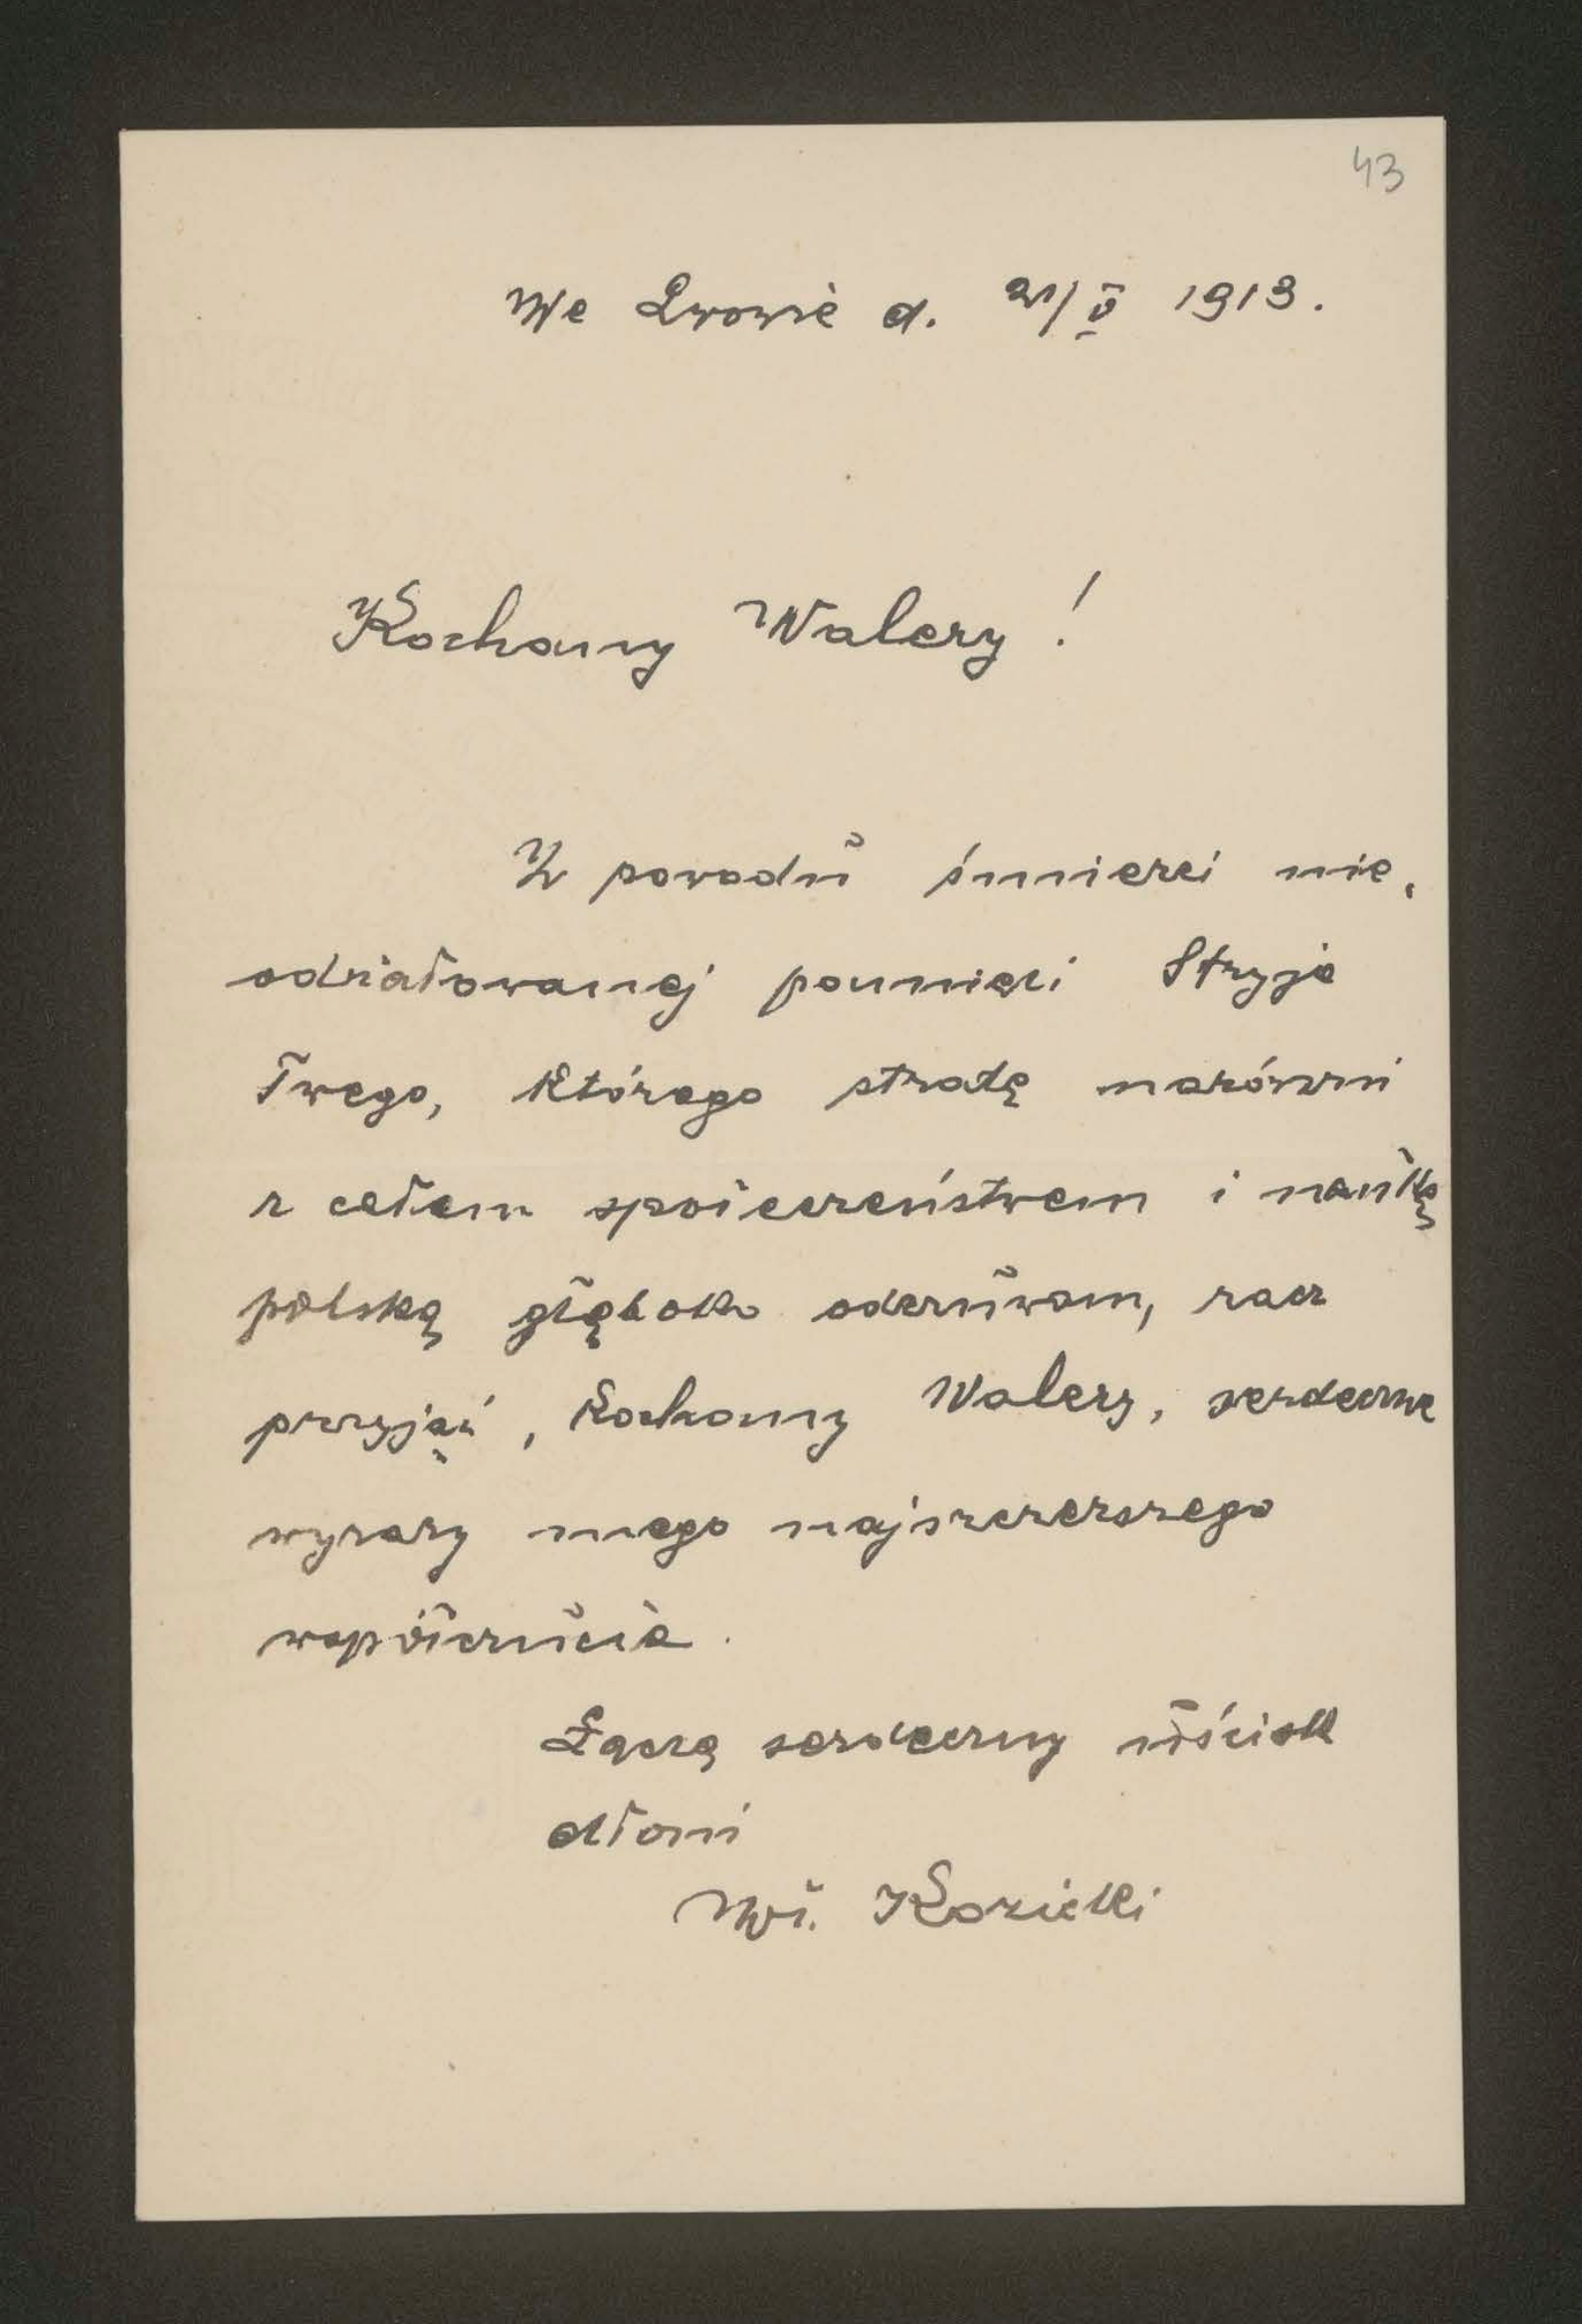 43
We Lwowie d. 21/V 1913.
Kochany Walery!
Z powodu śmierci nie,
odżałowanej pamięci Stryja
Twego, którego stratę narówni
z całem społeczeństwem i nauką
polską głęboko odczuwam, racz
przyjąć, Kochany Walery, serdeczne
wyrazy mego najszczerszego
współczucia.
Łączę serdeczny uścisk
dłoni
Wł. Kozicki